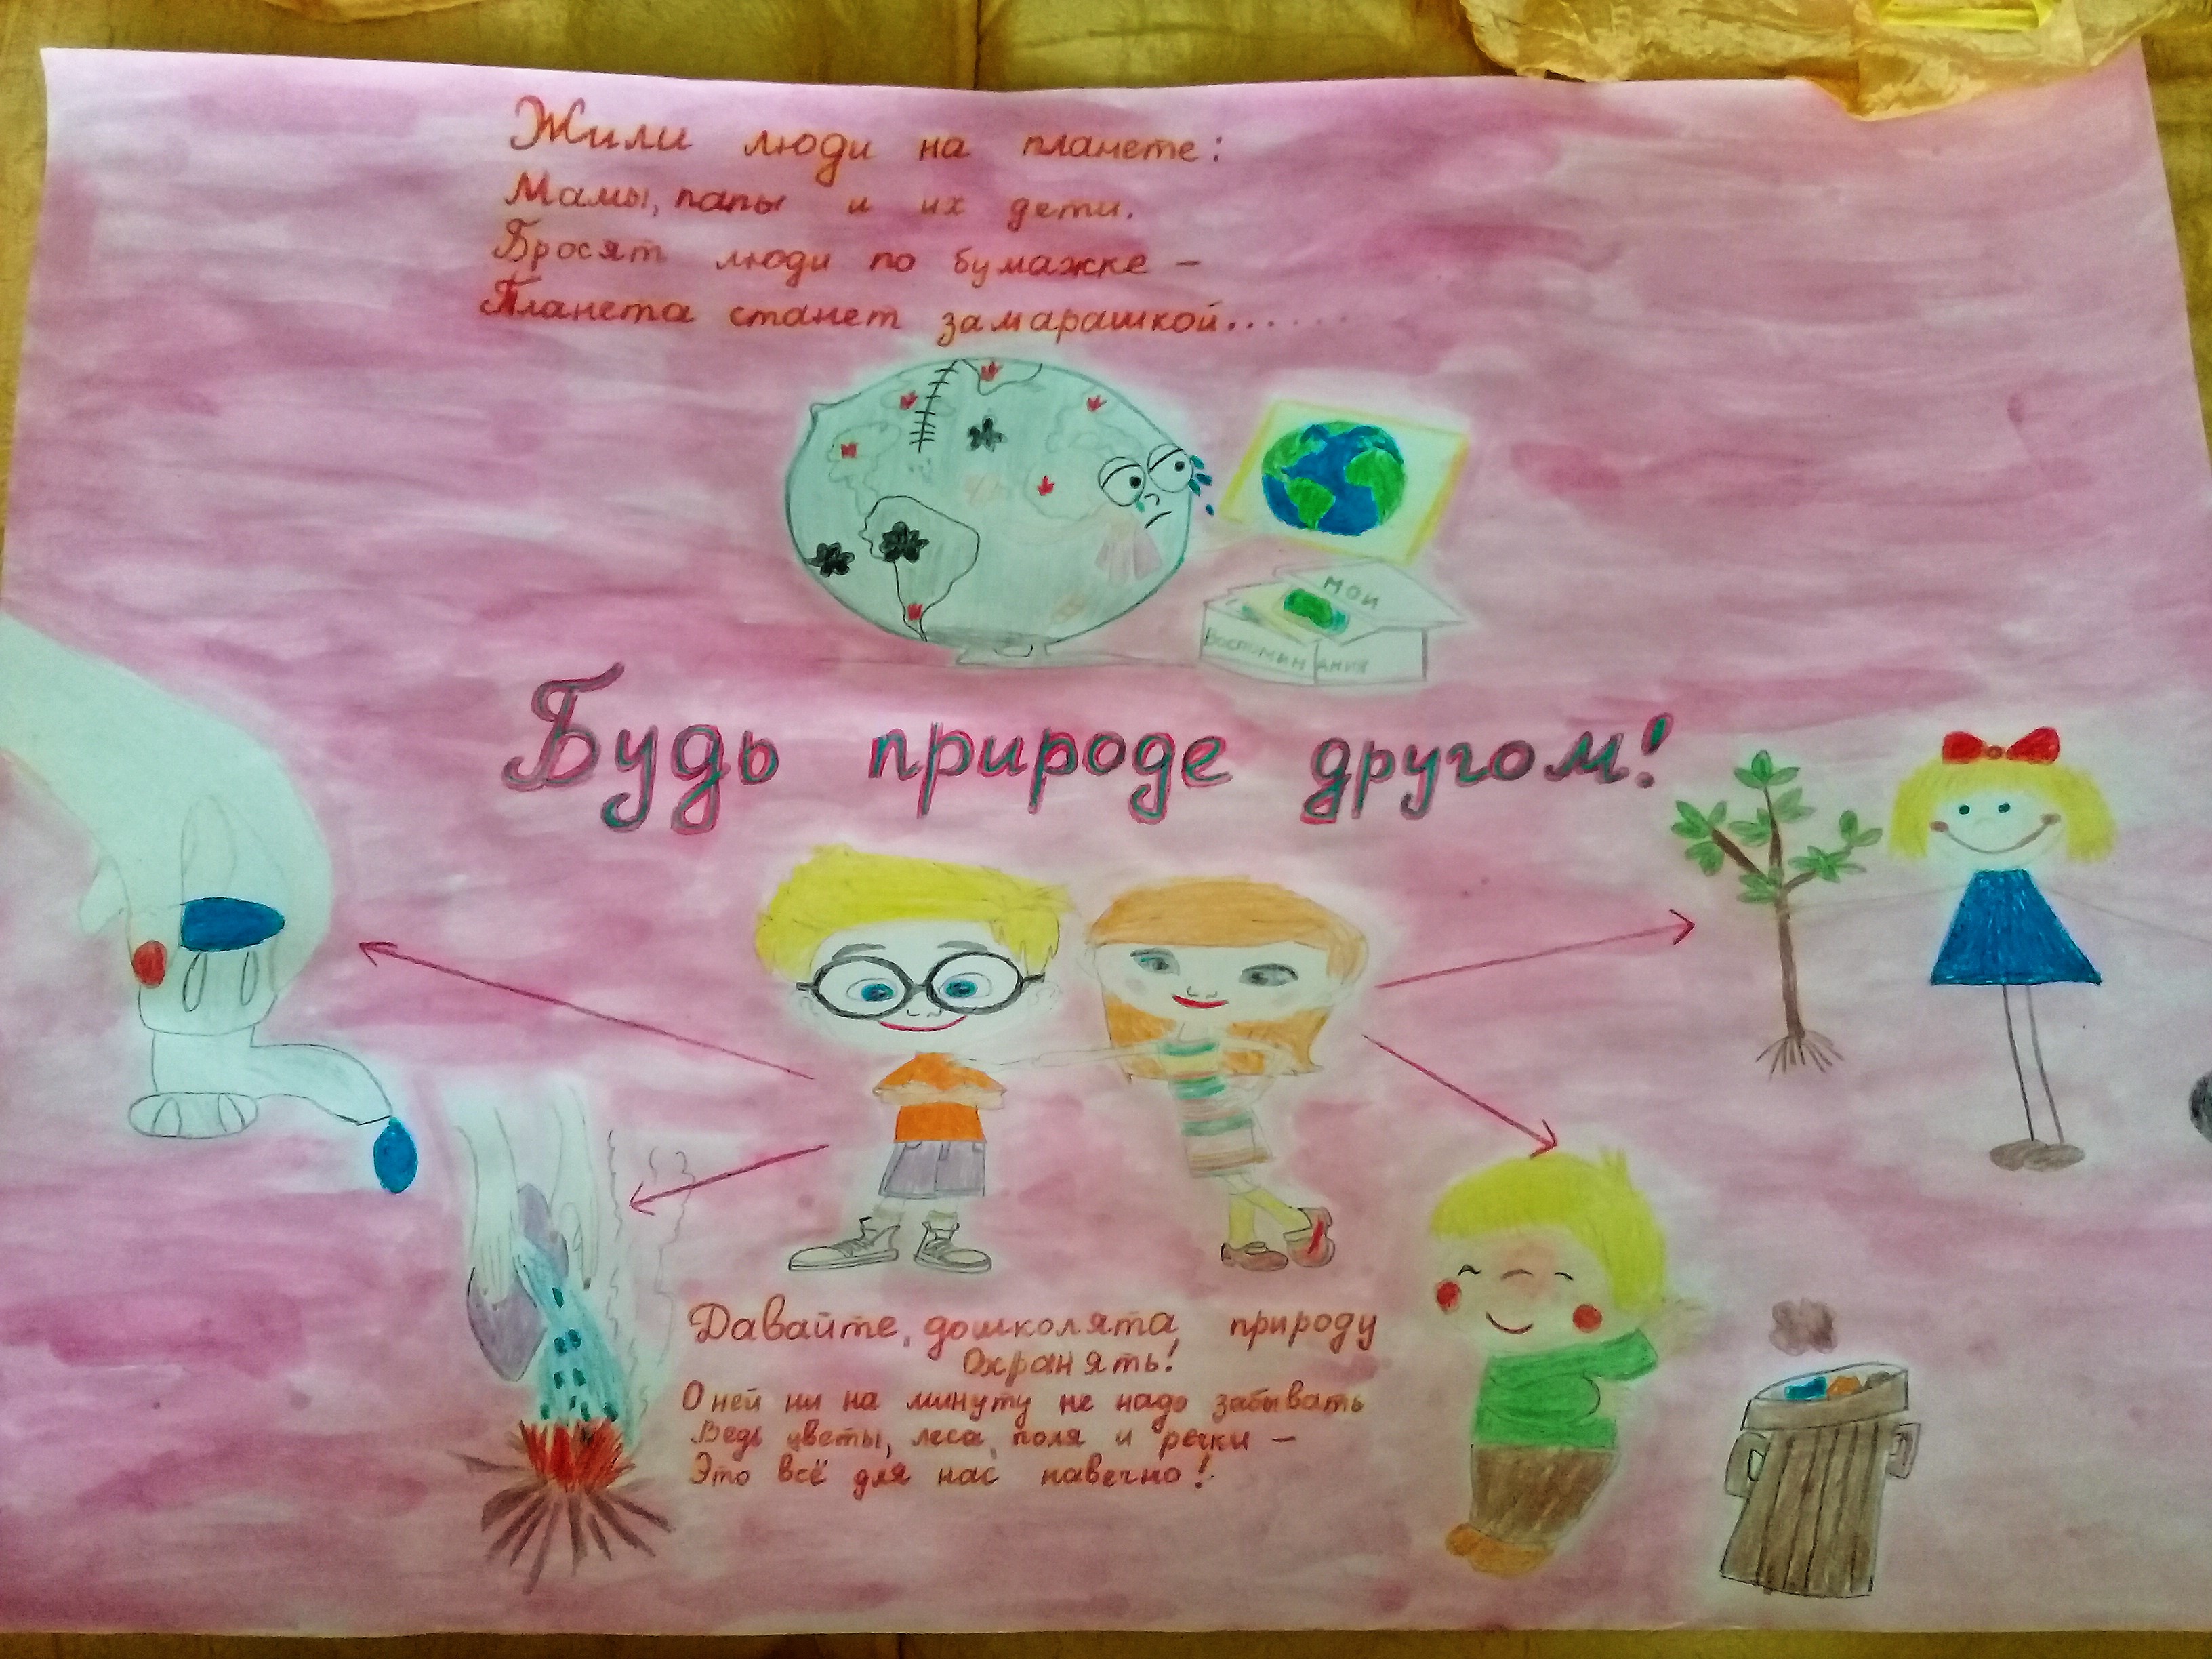 Жили люди на планете:
Мамы, папы и их дети.
Бросят люди по бумажке -
Планета станет замарашкой......
МОИ
ВОСПОМИНАНИЯ
Будь природе другом!
Давайте, дошколята природу
Охранять!
О ней ни на минуту не надо забывать
Ведь цветы, леса, поля и речки -
Это всё для нас навечно!